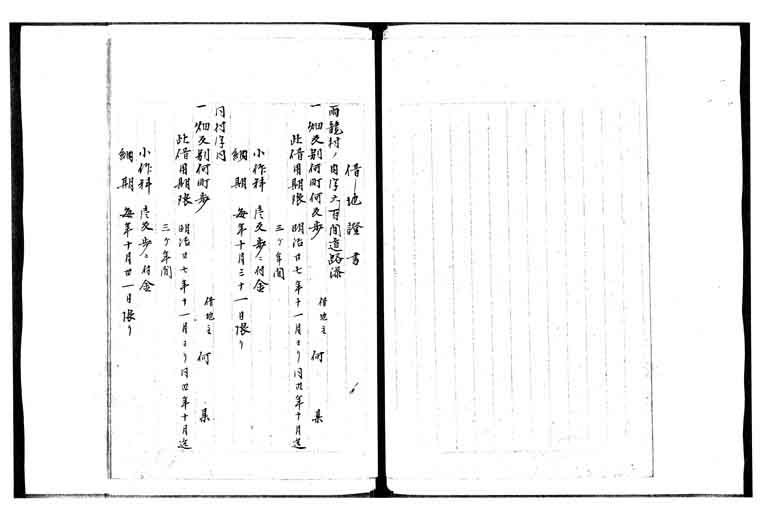 借地證書
雨龍村ノ内字六百間道路添
一畑反別何町何反歩
借地主 何 某
此借用期限 明治廿七年十一月ヨリ同卅年十月迄
三ケ年間
小作料 壱反歩ニ付金
納期 毎年十月三十一日限リ
同村字同
一畑反別何町歩
借地主 何 某
此借用期限 明治廿七年十一月ヨリ同卅年十月迄
三ケ年間
小作料 壱反歩ニ付金
納期 毎年十月卅一日限リ